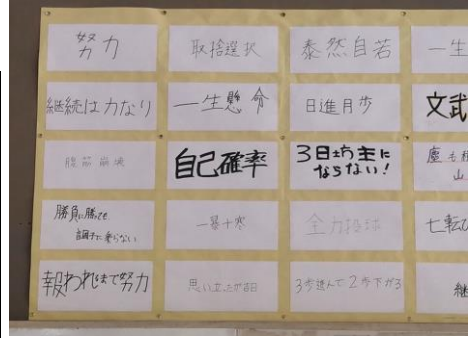 努力
取捨選択
泰然自若
一生
継続は力なり
一生懸命
日進月歩
文武
腹筋崩壊
自己確率
3日坊主に
ならない!
塵も積
山
勝負に勝っても
調子に乗らない
一暴十寒
全力投球
七転び
報われるまで努力
思い立ったが吉日
3歩進んで2歩下がる
継